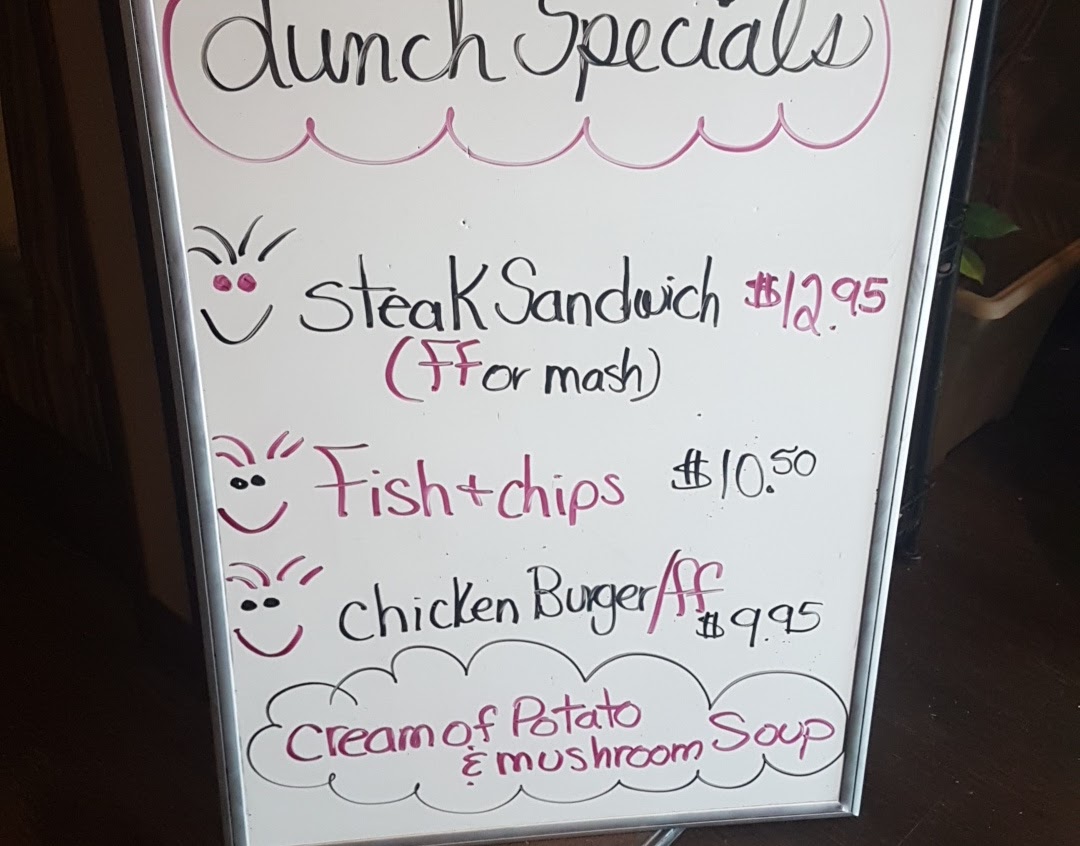 Lunch Specials
Steak Sandwich $12.95
(ff or mash)
Fish + chips $10.50
Chicken Burger/ff
$9.95
Cream of Potato
& mushroom Soup